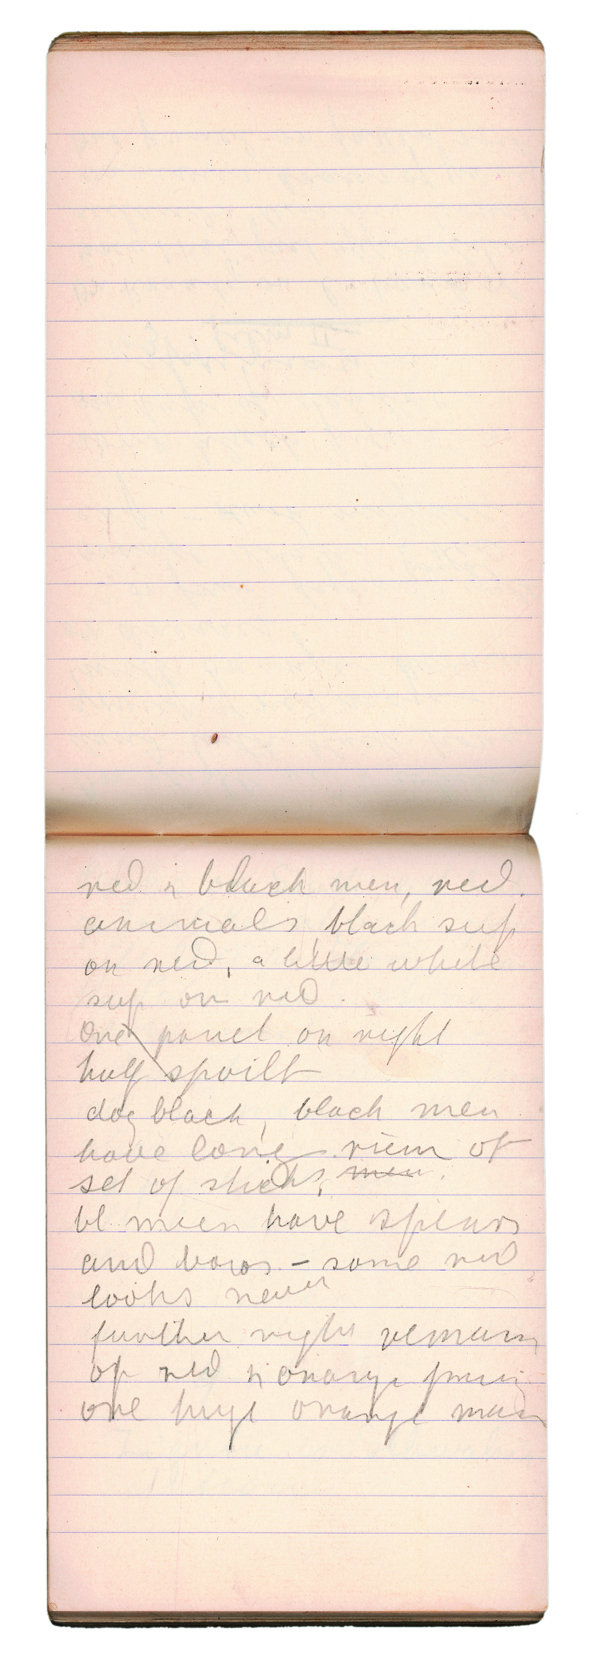 red & black men, red
animals, black sup
on red, a little white
sup on red.
One panel on right
half spoilt
dog black, black men
have long
set of sticks, men.
bl men have spears
and bows – some red
looks newer
further right remains
of red & orange
one huge orange man